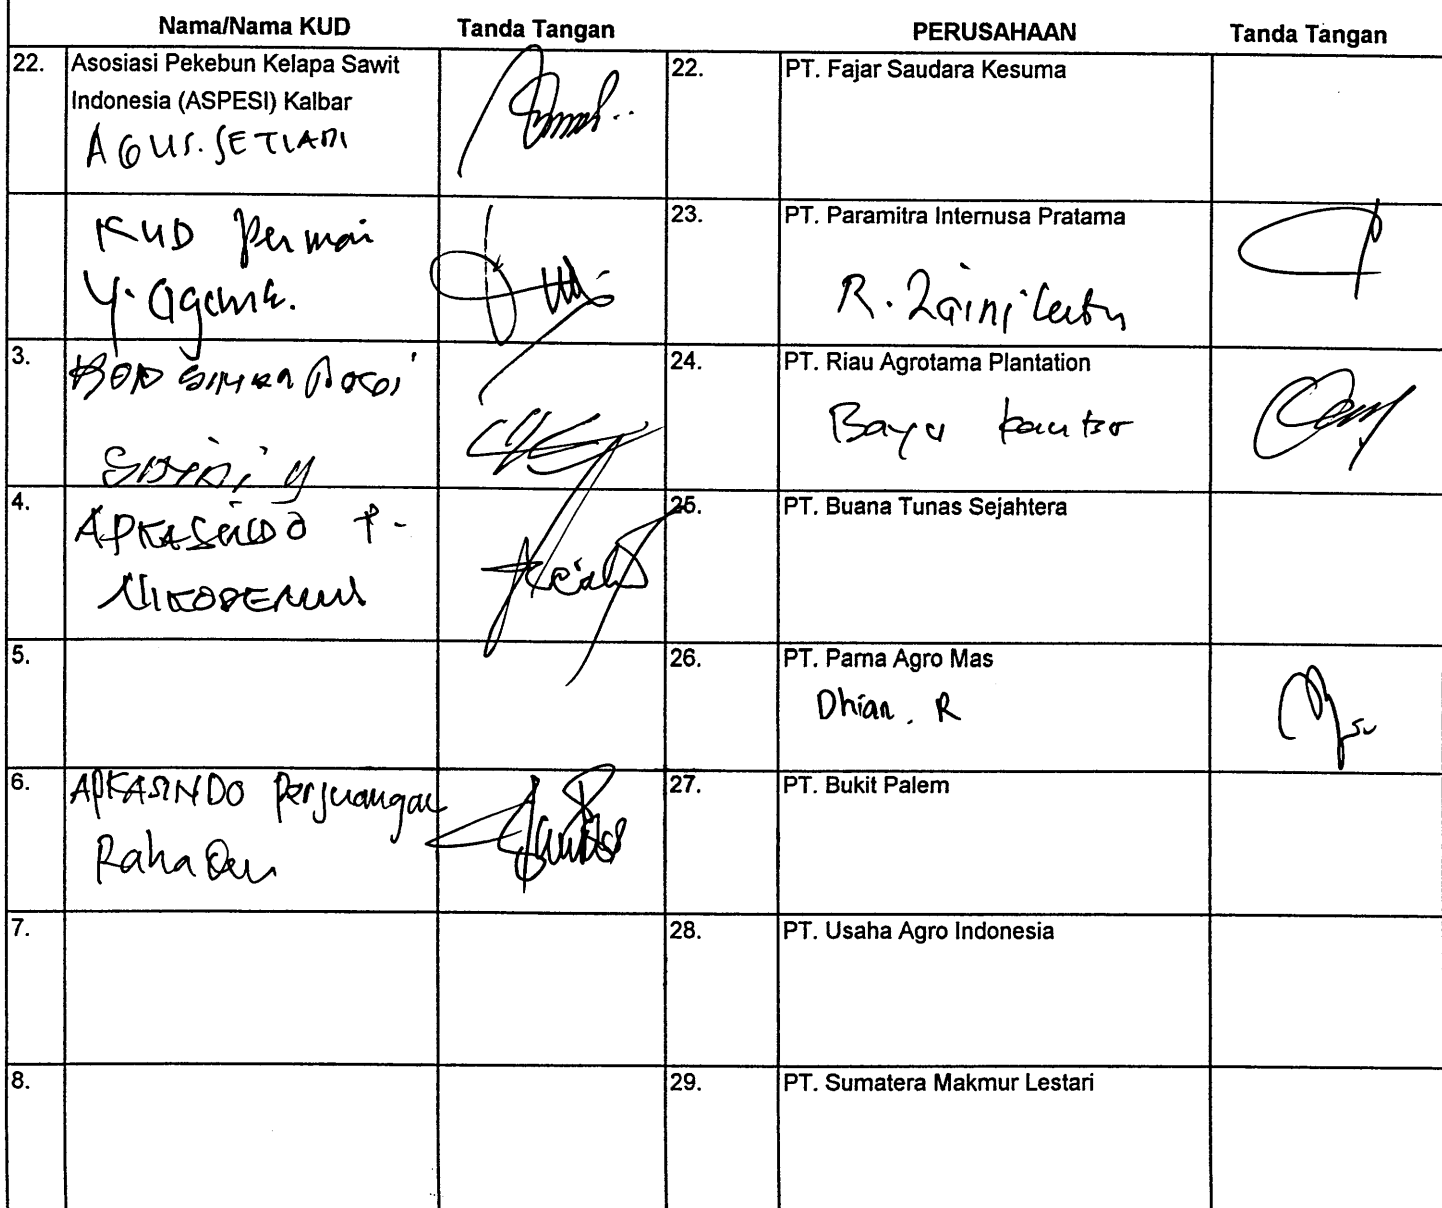 Nama/Nama KUD Tanda Tangan PERUSAHAAN Tanda Tangan
22. Asosiasi Pekebun Kelapa Sawit
Indonesia (ASPESI) Kalbar
AGUS. SETIADI
22. PT. Fajar Saudara Kesuma
KUD Permai
Y. Agama.
23. PT. Paramitra Internusa Pratama
R.
3.
24. PT. Riau Agrotama Plantation
Bayu
4. APKASINDO P-
NIKODEMUS
25. PT. Buana Tunas Sejahtera
5.
26. PT. Parna Agro Mas
Dhian. R
6. APKASINDO Perjuangan
27. PT. Bukit Palem
7.
28. PT. Usaha Agro Indonesia
8.
29. PT. Sumatera Makmur Lestari